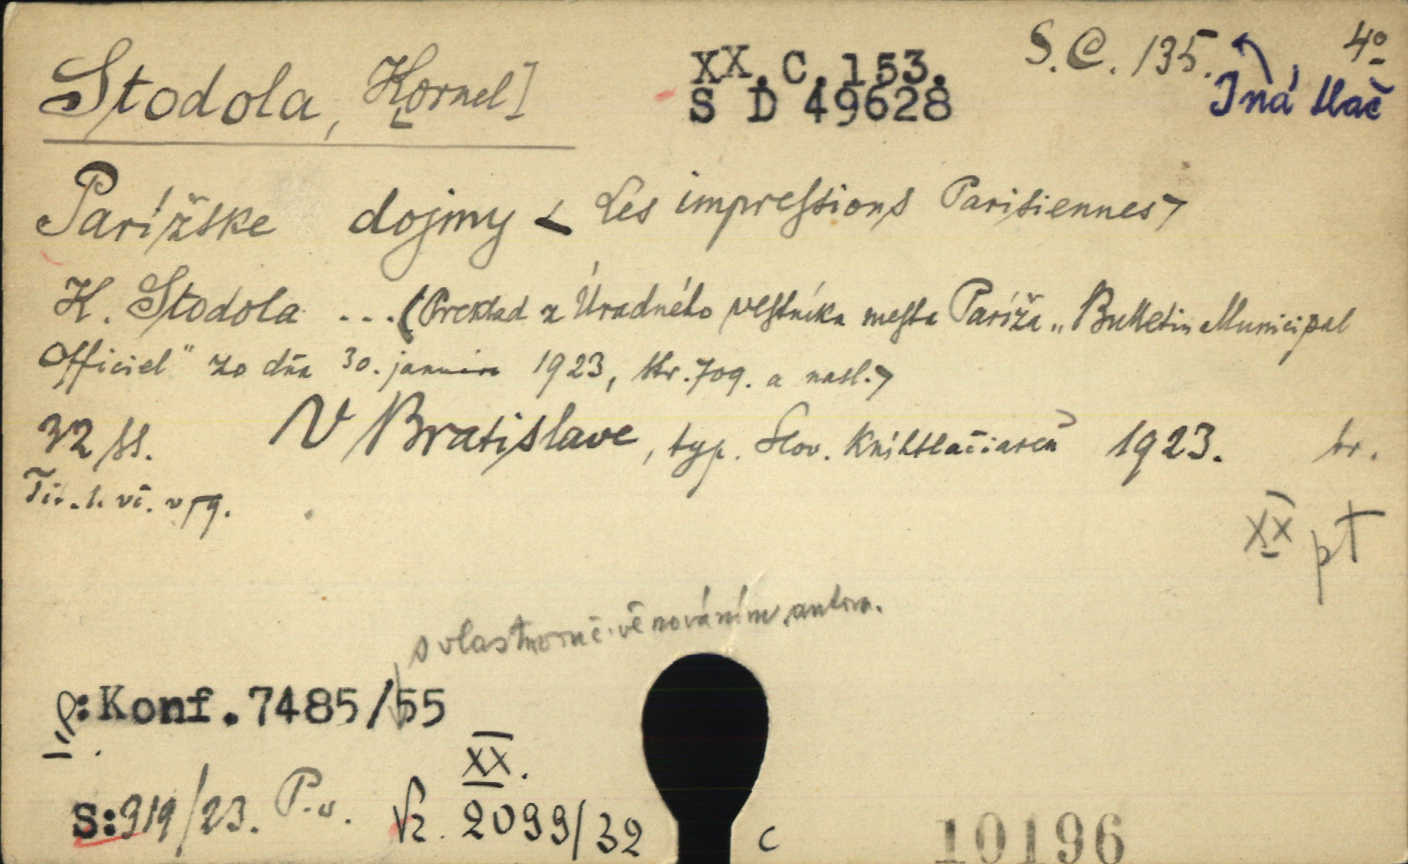 Stodola, Kornel]
XX.C.153.
S D 49628
S.C. 135.
4º
Iná tlač
Parížske dojmy < Les impressions Parisiennes>
K. Stodola ... (Preklad z Úradného vestníka mesta Paríža „Bulletin Municipal
Officiel" zo dňa 30. januára 1923, str. 709. a nasl.>
32 ss. V Bratislave, typ. Slov. Kníhtlačiareň 1923. br.
XX pt
s vlastnoruč. věnováním autora.
:Konf.7485/55
XX.
S:919/23. P.v. 2099/32 c
10196